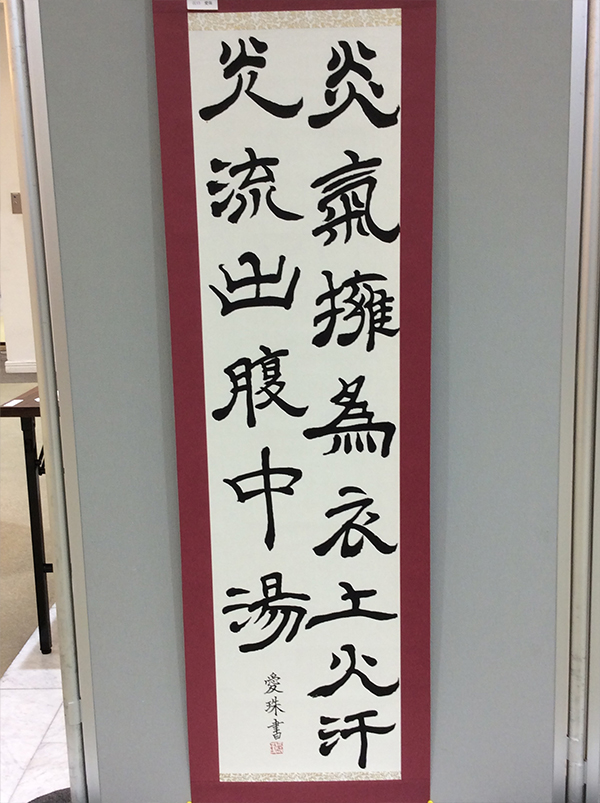 炎氣擁為衣上火汗
交流出腹中湯
愛珠書